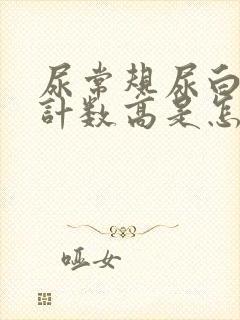 尿常规尿白
計数高是怎
哑女